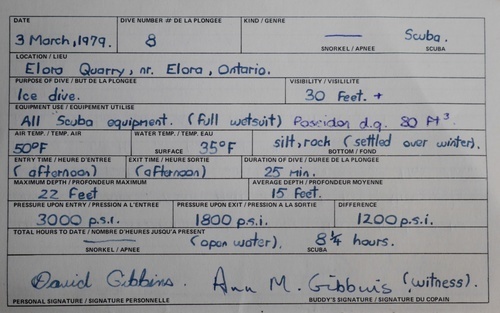 DATE DIVE NUMBER # DE LA PLONGÉE KIND / GENRE
3 March, 1979. 8 — Scuba.
SNORKEL / APNEE SCUBA
LOCATION / LIEU
Elora Quarry, nr. Elora, Ontario.
PURPOSE OF DIVE / BUT DE LA PLONGÉE VISIBILITY / VISILILITE
Ice dive. 30 Feet. +
EQUIPMENT USE / EQUIPEMENT UTILISE
All Scuba equipment. (full wetsuit) Poseidon d.q. 80 ft³
AIR TEMP. / TEMP. AIR WATER TEMP. / TEMP. EAU
50°F SURFACE 35°F silt, rock (settled over winter).
BOTTOM / FOND
ENTRY TIME / HEURE D'ENTREE EXIT TIME / HEURE SORTIE DURATION OF DIVE / DURÉE DE LA PLONGEE
(afternoon) (afternoon) 25 min.
MAXIMUM DEPTH / PROFONDEUR MAXIMUM AVERAGE DEPTH / PROFONDEUR MOYENNE
22 Feet 15 feet.
PRESSURE UPON ENTRY / PRESSION A L'ENTREE PRESSURE UPON EXIT / PRESSION A LA SORTIE DIFFERENCE
3000 p.s.i. 1800 p.s.i. 1200 p.s.i.
TOTAL HOURS TO DATE / NOMBRE D'HEURES JUSQU'A PRESENT
— (open water). 8 1/4 hours.
SNORKEL / APNEE SCUBA
David Gibbins. Ann M. Gibbins (witness).
PERSONAL SIGNATURE / SIGNATURE PERSONNELLE BUDDY'S SIGNATURE / SIGNATURE DU COPAIN